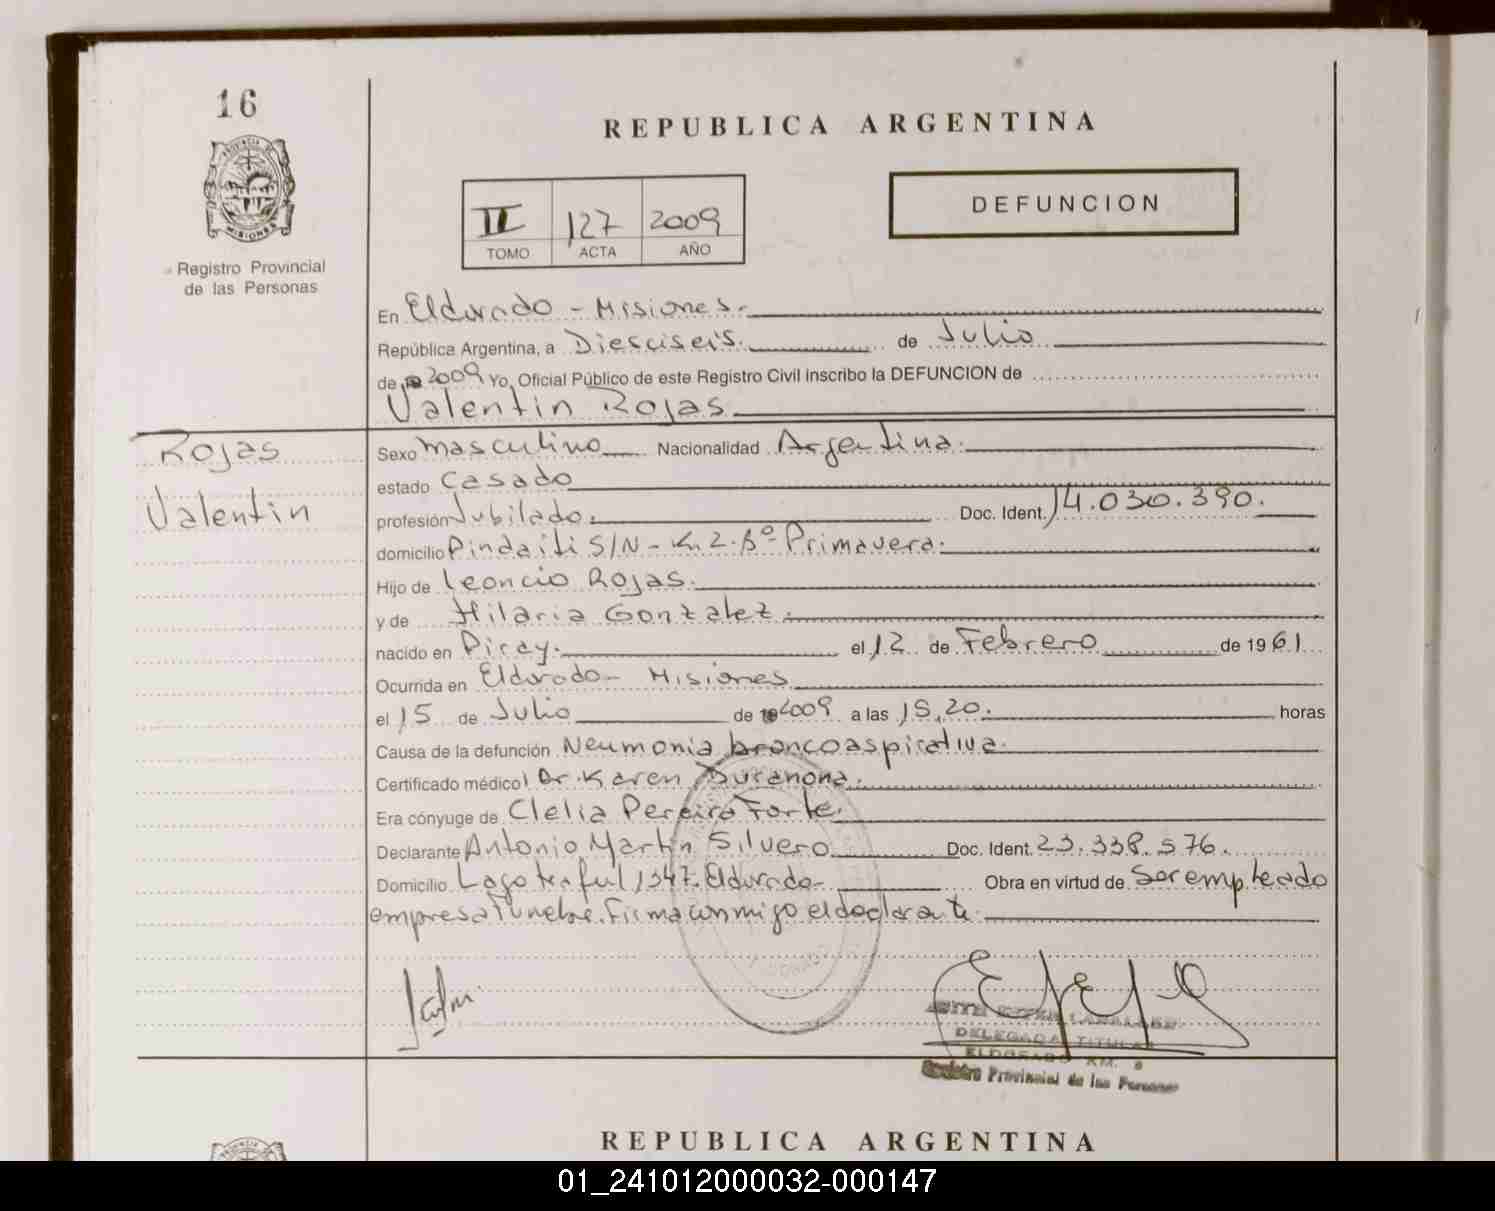 16
REPUBLICA ARGENTINA
PROVINCIA DE
MISIONES
Registro Provincial
de las Personas
II 127 2009
TOMO ACTA AÑO
DEFUNCION
En Eldorado - Misiones.
República Argentina, a Diesciseis. de Julio
de 2009 Yo, Oficial Público de este Registro Civil inscribo la DEFUNCION de
Valentin Rojas
Rojas
Valentin
Sexo masculino Nacionalidad Argentina.
estado Casado
profesión Jubilado. Doc. Ident. 14.030.390.
domicilio Pindaiti S/N - K. 2. Bº- Primavera.
Hijo de Leoncio Rojas.
y de Hilaria Gonzalez.
nacido en Piray. el 12 de Febrero de 1961
Ocurrida en Eldorado - Misiones
el 15 de Julio de 2009 a las 15,20. horas
Causa de la defunción Neumonia broncoaspirativa.
Certificado médico Dr. Karen Duranona.
Era cónyuge de Clelia Pereira Forte.
Declarante Antonio Martin Silvero Doc. Ident. 23.338.576.
Domicilio Lago 1347. Eldorado- Obra en virtud de Ser empleado
empresa Funebre. Firma conmigo el declarante.
DELEGADA TITULAR
ELDORADO KM.
Registro Provincial de las Personas
REPUBLICA ARGENTINA
01_241012000032-000147